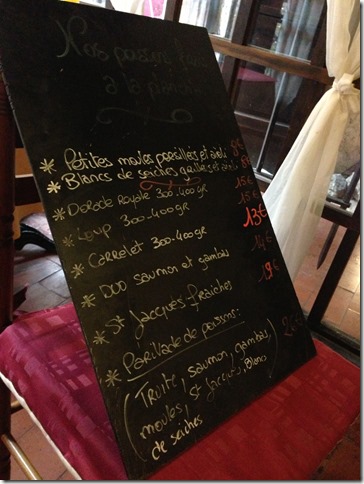 Nos poissons frais
à la plancha
* Petites moules persillées et aioli 8€
* Blancs de seiches grillés et aioli 8€
* Dorade Royale 300-400gr 15€
* Loup 300-400gr 15€
* Carrelet 300-400gr 13€
* Duo saumon et gambas 14€
* St Jacques fraîches 19€
* Parillade de poissons:
(Truite, saumon, gambas,
moules, St Jacques, Blanc
de seiches